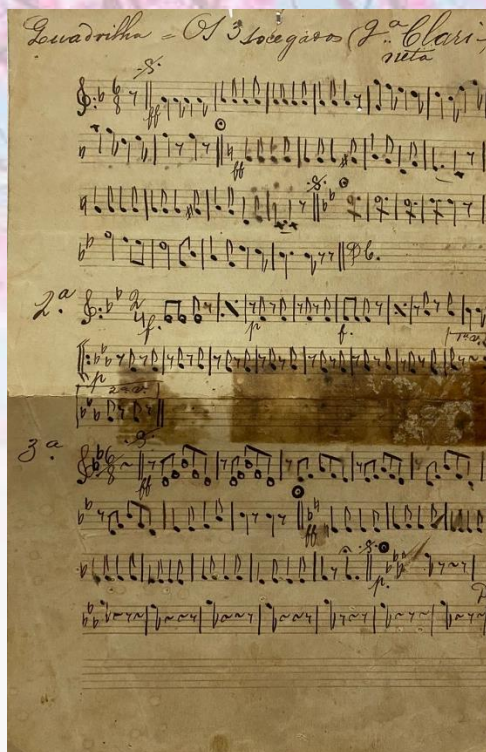 Quadrilha = Os 3 socegados (2.ª Clari-
neta
ff
ff
D.C.
2.ª
2
4
f.
p
f.
1.ª v.
p
2.ª v.
3.ª
6
8
ff
ff
p.